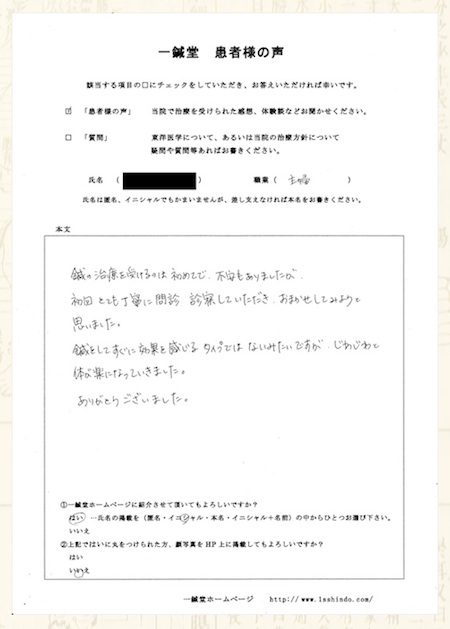 一鍼堂 患者様の声
該当する項目の□にチェックをしていただき、お答えいただければ幸いです。
☑ 「患者様の声」 当院で治療を受けられた感想、体験談などお聞かせください。
□ 「質問」 東洋医学について、あるいは当院の治療方針について
疑問や質問等あればお書きください。
氏名 ( ) 職業 ( 主婦 )
氏名は匿名、イニシャルでもかまいませんが、差し支えなければ本名をお書きください。
本文
鍼の治療を受けるのは初めてで、不安もありましたが、
初回とても丁寧に問診 診察していただき、おまかせしてみようと
思いました。
鍼をしてすぐに効果を感じるタイプではないみたいですが、じわじわと
体が楽になっていきました。
ありがとうございました。
①一鍼堂ホームページに紹介させて頂いてもよろしいですか?
はい ―氏名の掲載を(匿名・イニシャル・本名・イニシャル+名前)の中からひとつお選び下さい。
いいえ
②上記ではいに丸をつけられた方、顔写真をHP上に掲載してもよろしいですか?
はい
いいえ
一鍼堂ホームページ http://www.1sshindo.com/